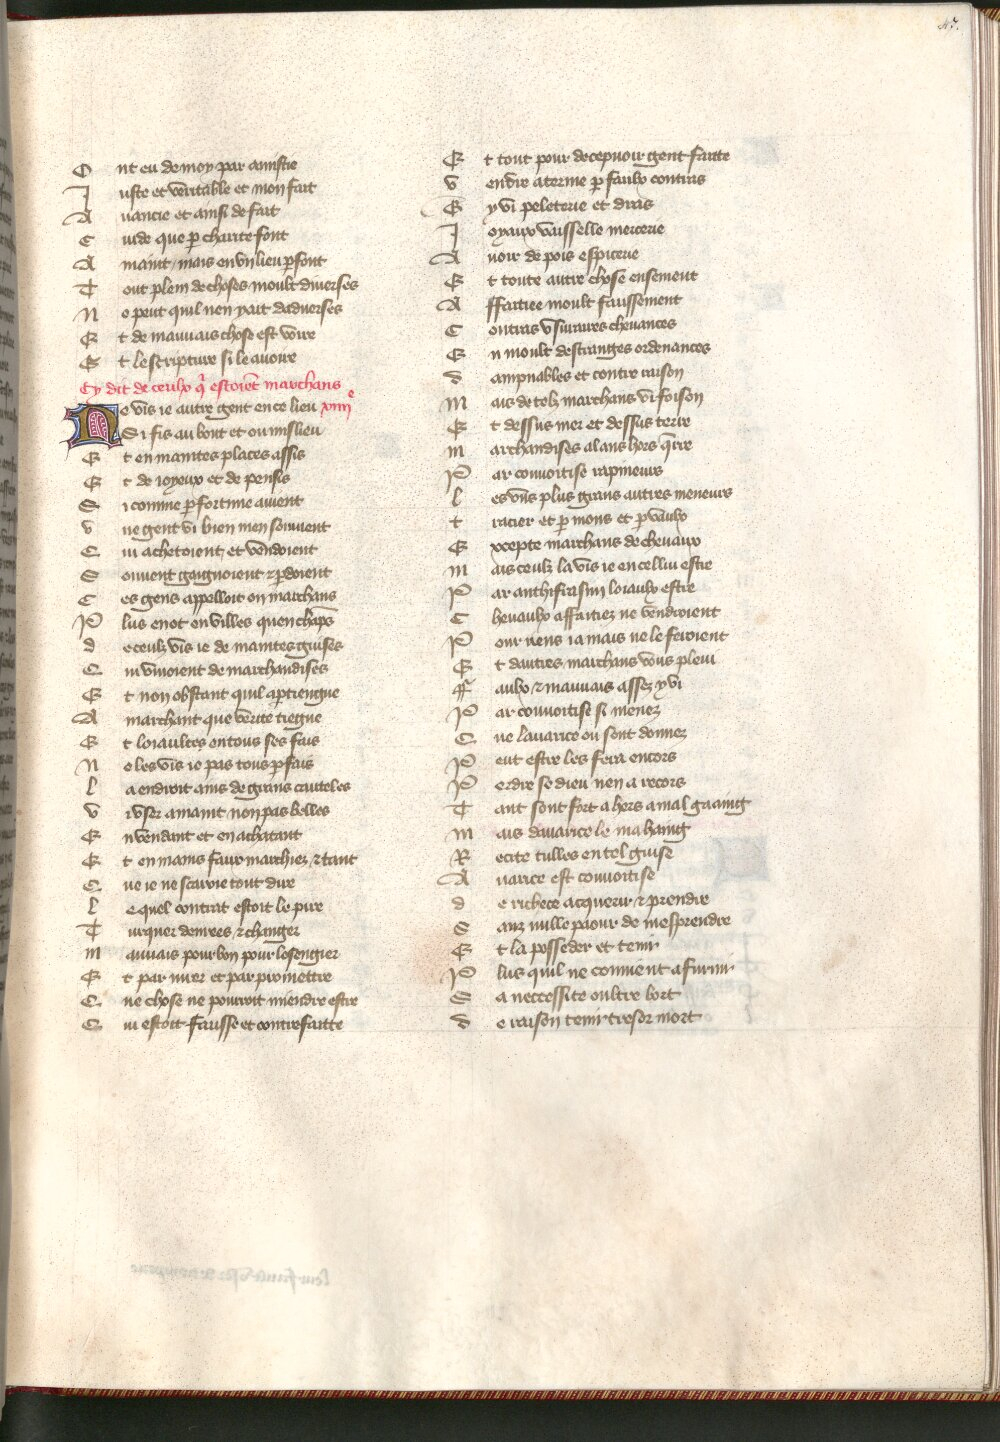 47.
Ont eu de moy par amistie
Juste et veritable et mon fait
Auancie et ainsi de fait
Cuide que p charite font
A maint / mais en vn lieu pfont
Tout plein de choses moult diuerses
Ne peut quil nen yait daduerses
Et de mauuais chose est voire
Et lescripture si le auoire
Cy dit de ceulx q̃ estoiẽt marchans
De vis ie autre gent en ce lieu xiiiie
Si fis au bout et ou mislieu
Et en maintes places assis
Et de ioyeux et de pensis
Si comme p fortune auient
Vne gent vi bien men souuient
Qui achetoient et vendoient
Souuent gaignoient ⁊ pdoient
Ces gens appelloit on marchans
Plus en ot en villes quen chãps
De ceulz vis ie de maintes guises
Qui viuoient de marchandises
Et non obstant quil aptiengne
A marchant que verite tiegne
Et loiaultes en tous ses fais
Ne les vis ie pas tous pfais
La endroit ains de grans cauteles
Vi vser a maint non pas belles
En vendant et en achatant
Et en mains faux marchiez ⁊ tant
Que ie ne scauroie tout dire
Lequel contrat estoit le pire
Turquer denrees ⁊ changer
Mauuais pour bon pour losengier
Et par iurer et par promettre
Que chose ne pourroit miendre estre
Qui estoit fausse et contrefaitte
Et tout pour decepuoir gent faitte
Vendre a terme p faulx contras
Gy vi peleterie et dras
Joyaux vaisselle mercerie
Auoir de pois espicerie
Et toute autre chose ensement
Affaitiee moult faussement
Contras vsuraires cheuances
En moult destranges ordenances
Dampnables et contre raison
Mais de telz marchans vi foison
Et dessus mer et dessus terre
Marchandises alans hors q̃rre
Par conuoitise rapineurs
Les vns plus grans autres meneurs
Tracier et p mons et p vaulx
Excepte marchans de cheuaux
Mais ceulz la vis ie en cellui estre
Par anthifrasim loiaulx estre
Cheuaulx affaitiez ne vendroient
Pour riens iamais ne le feroient
Et dautres marchans vous pleui
Faulx ⁊ mauuais assez y vi
Par conuoitise si menez
Que lauarice ou sont donnez
Peut estre les fera encors
Perdre se dieu nen a recors
Tant sont fort ahers a mal gaaing
Mais dauarice le mahaing
Recite tulles en tel guise
Auarice est conuoitise
De richece acquerir ⁊ prendre
Sanz nulle paour de mesprendre
Et la posseder et tenir
Plus quil ne conuient a furnir
Sa neccessite oultre bort
De raison tenir tresor mort